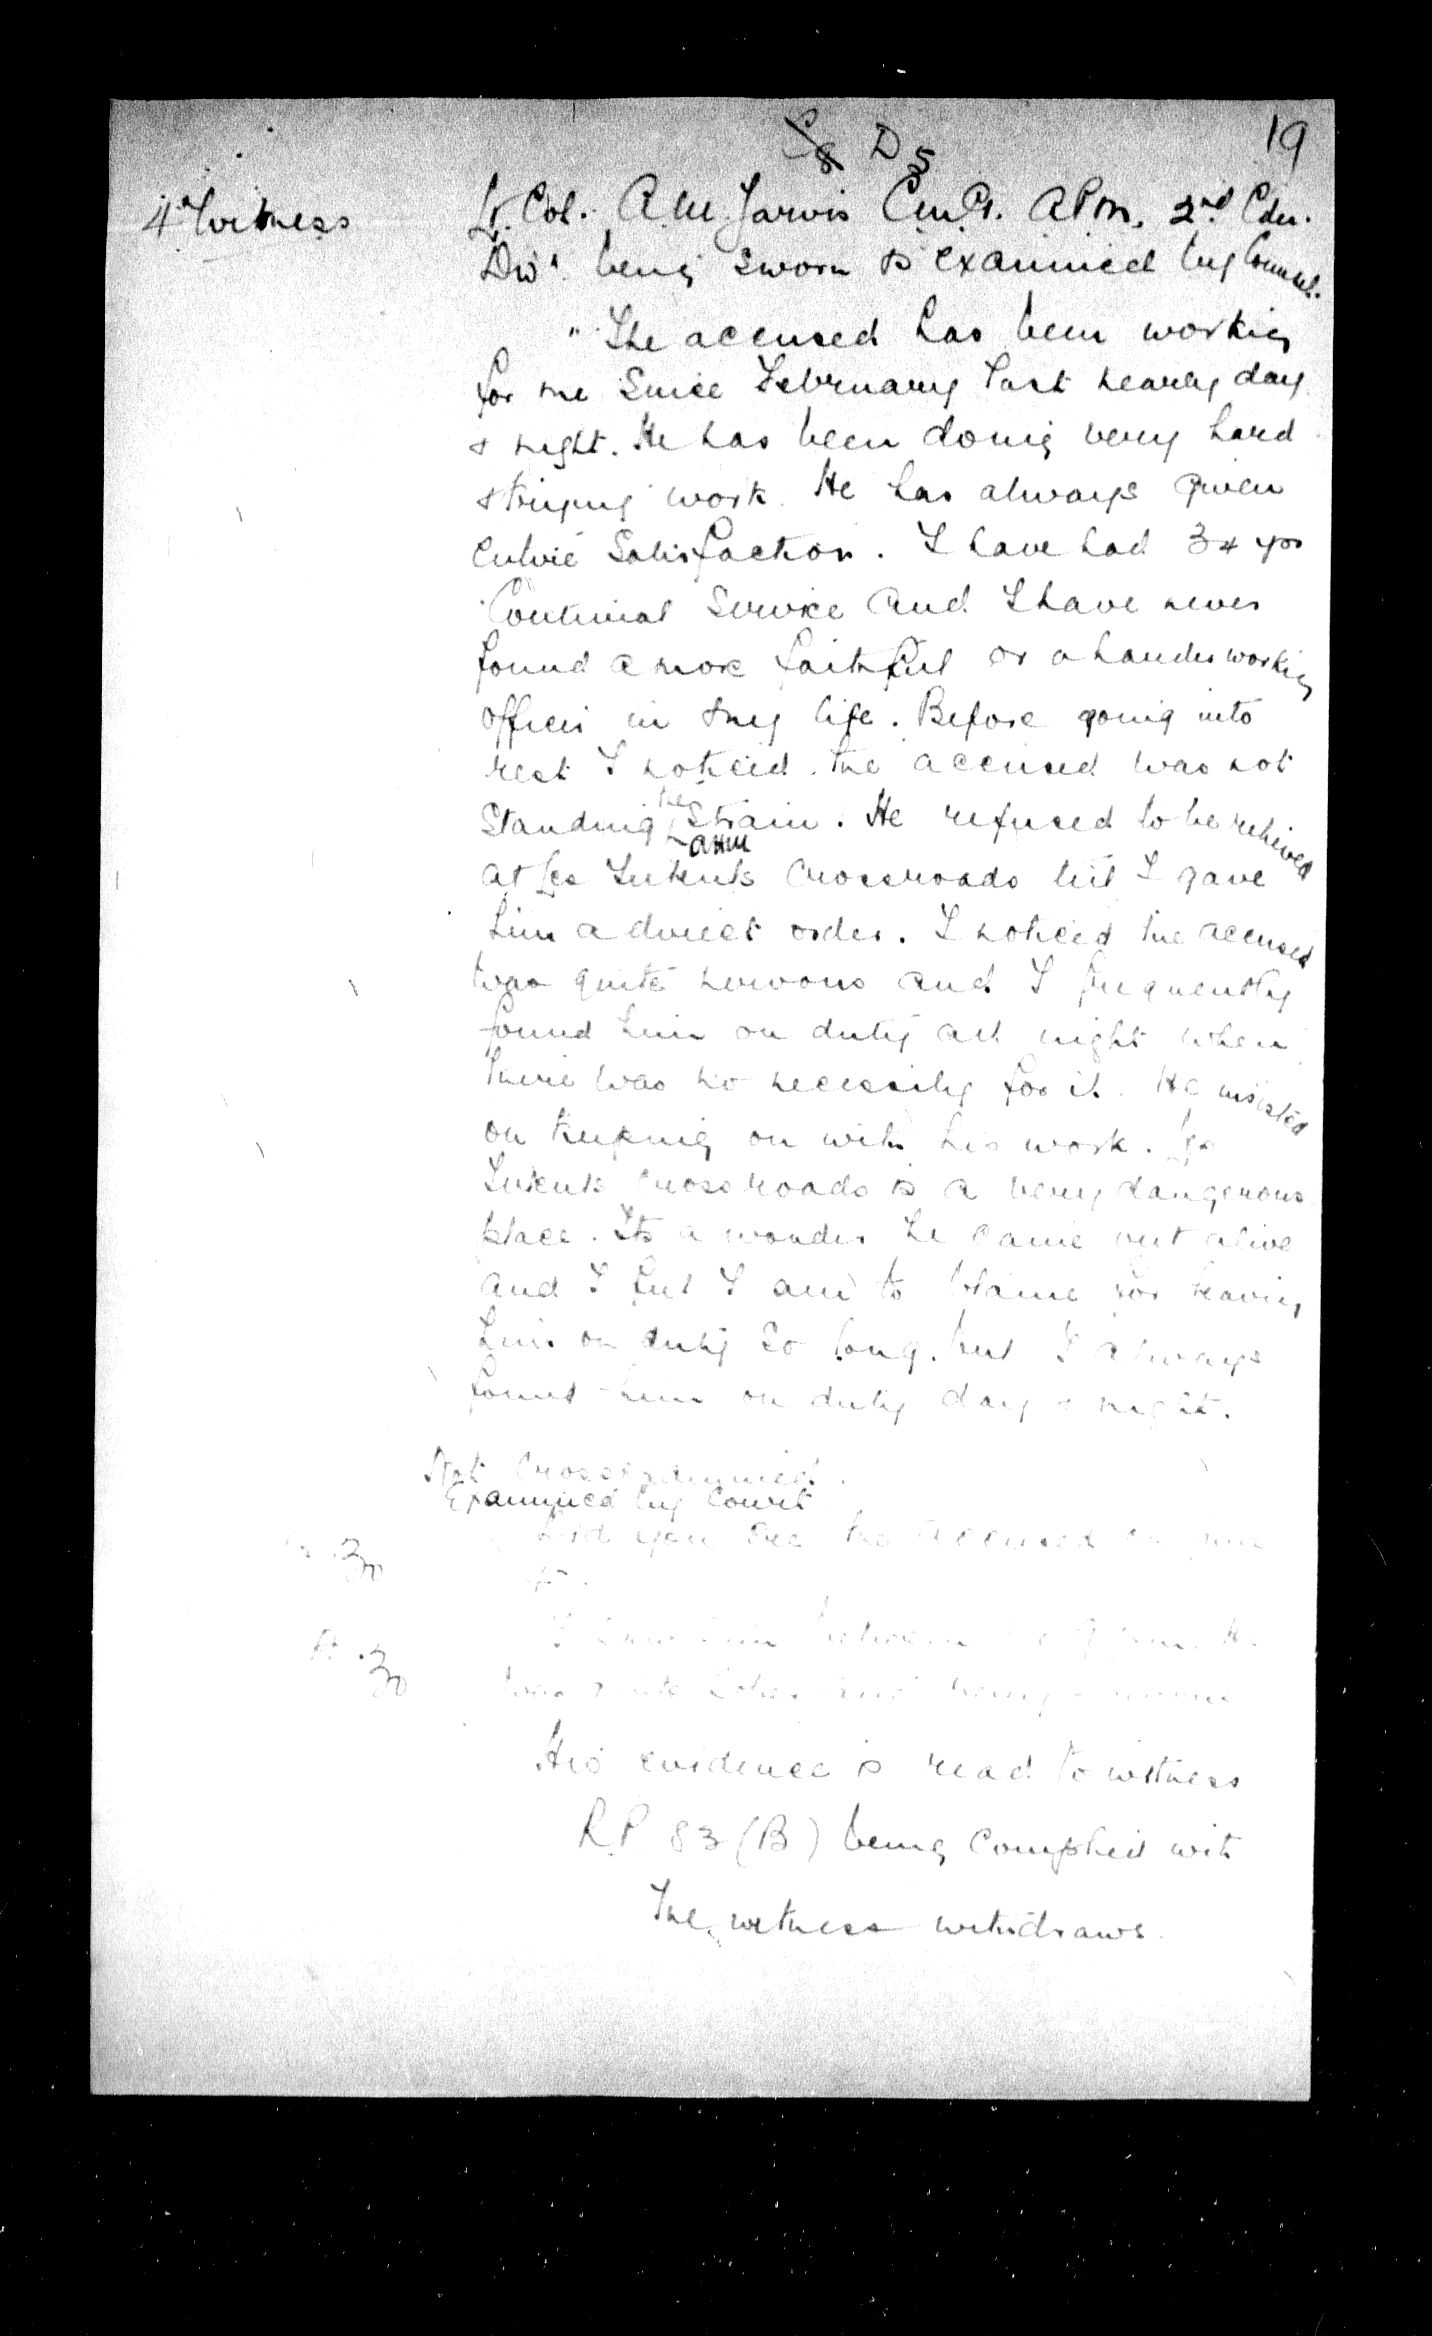 C8 D5
19
4th Witness
Lt. Col. A.M. Jarvis C.M.G. A.P.M. 2nd Cdn.
Divn. being sworn is examined by Counsel.
"The accused has been working
for me since February last nearly day
& night. He has been doing very hard
& trying work. He has always given
entire Satisfaction. I have had 34 yrs
Continual Service and I have never
found a more faithful or a harder working
officer in my life. Before going into
rest I noticed the accused was not
standing the strain. He refused to be relieved
at Les Crossroads till I gave
him a direct order. I noticed the accused
was quite nervous and I frequently
found him on duty all night when
there was no necessity for it. He insisted
on keeping on with his work.
Crossroads is a very dangerous
place. Its a wonder he came out alive
and I feel I am to blame for leaving
him on duty so long, but I always
found him on duty day & night.
Not Cross examined.
Examined by Court
30
Did you see the accused on
A. 30
I saw him between
was quite
His evidence is read to witness
R.P. 83 (B) being complied with
The witness withdraws.